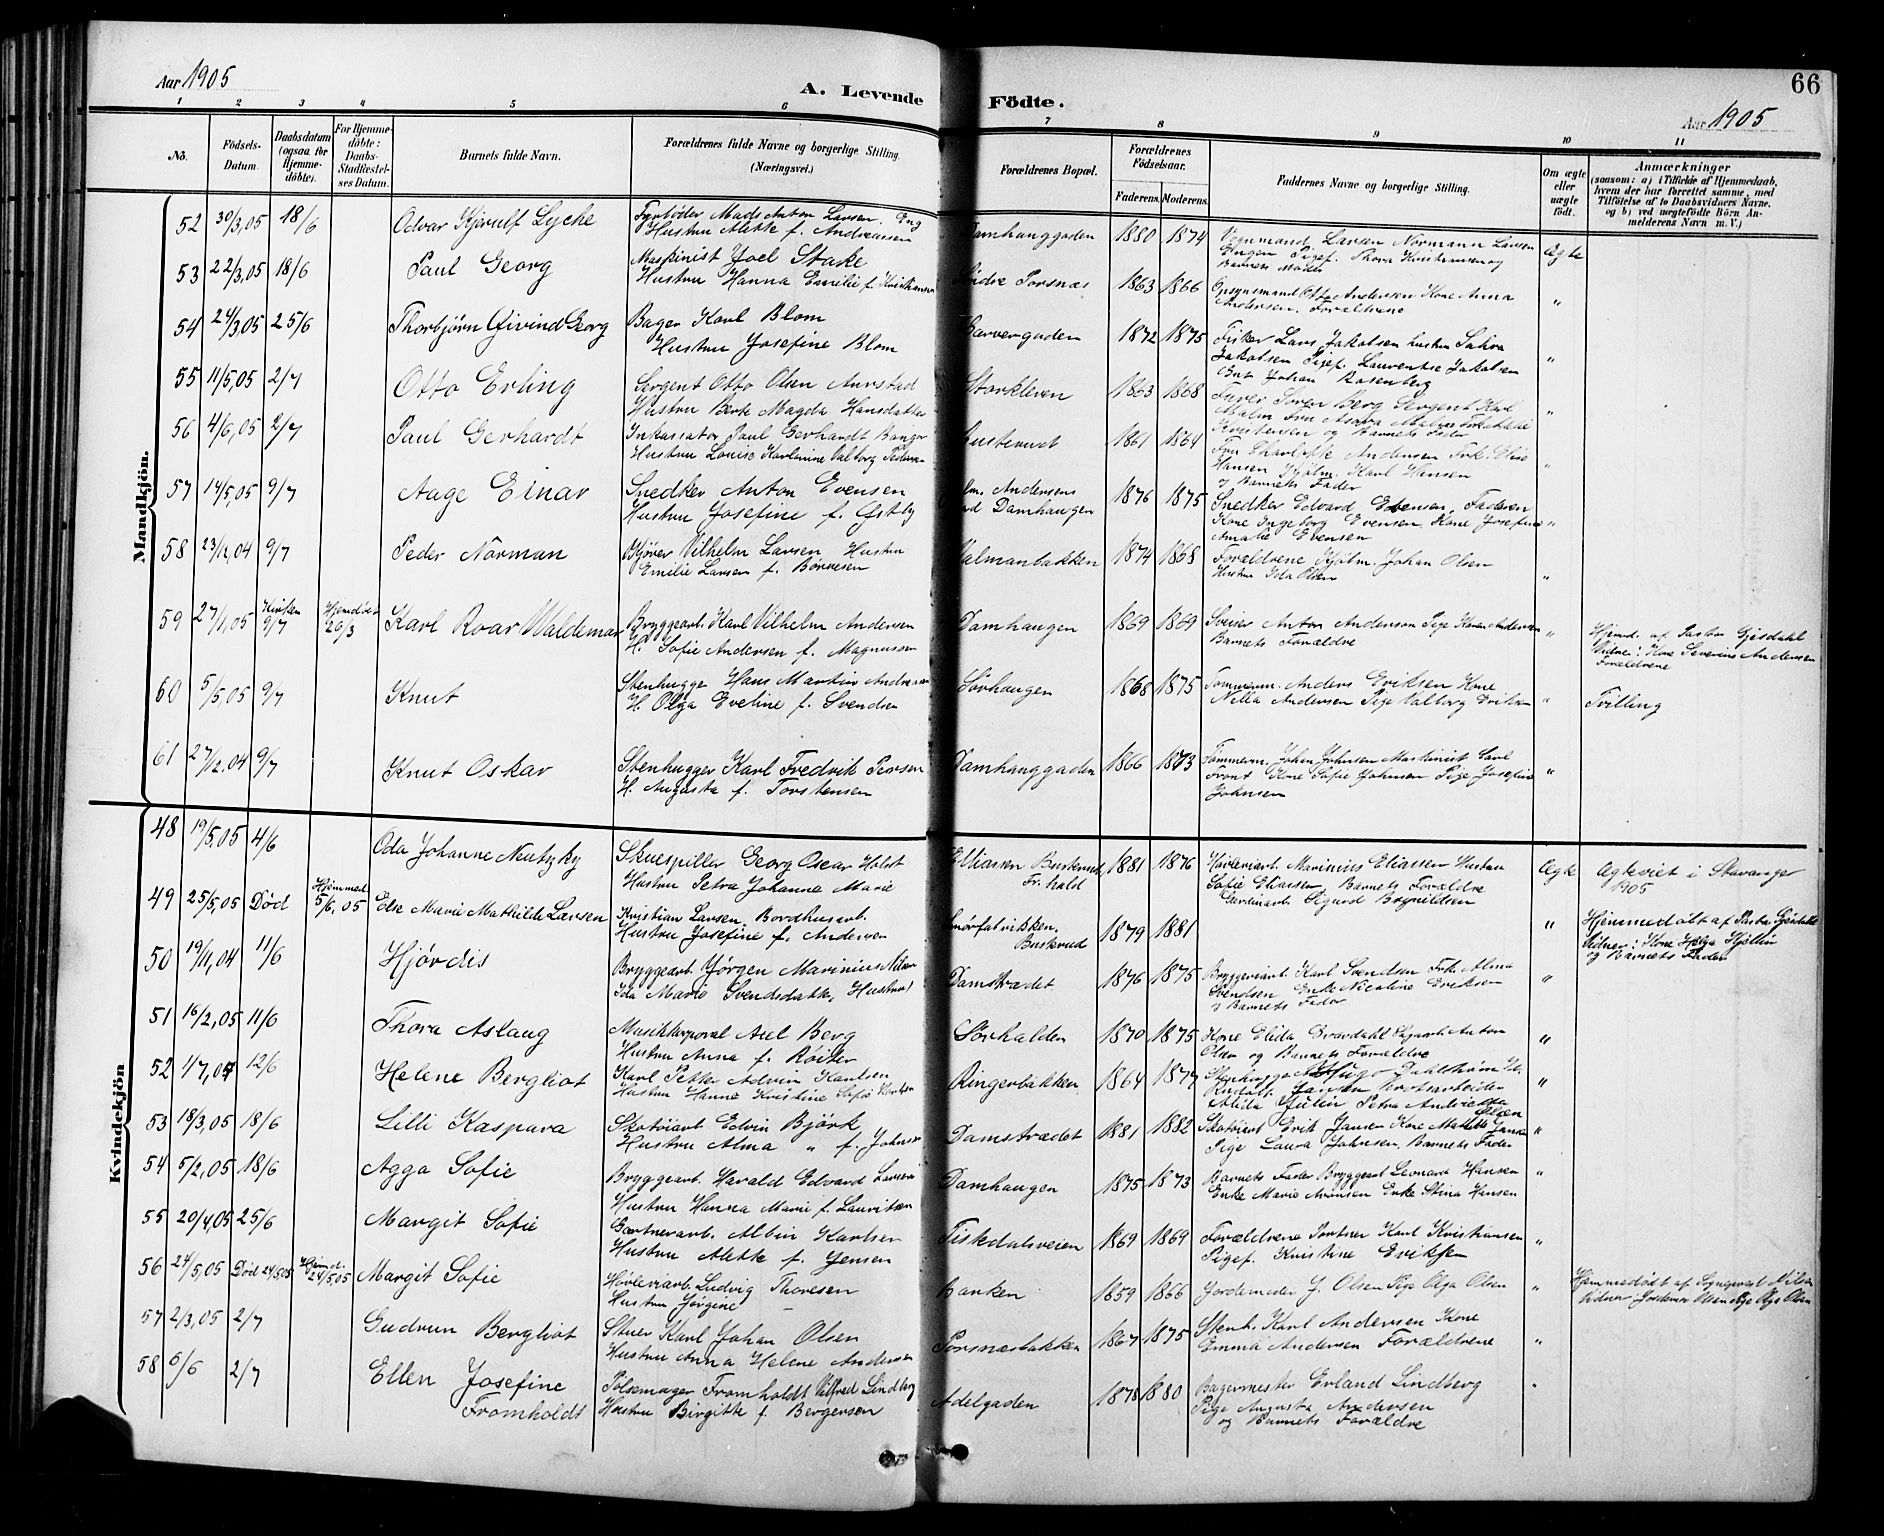 66
Aar 1905
A. Levende Födte.
Aar 1905
1 2 3 4 5 6 7 8 9 10 11
No.
Födsels-Datum.
Daabsdatum (ogsaa for Hjemme-döbte).
For Hjemme-döbte: Daabs-Stadfæstel-ses Datum.
Barnets fulde Navn.
Forældrenes fulde Navne og borgerlige Stilling. (Næringsvei.)
Forældrenes Bopæl.
Forældrenes Födselsaar.
Faderens. Moderens.
Faddernes Navne og borgerlige Stilling.
Om ægte eller uægte födt.
Anmærkninger
(saasom: a) i Tilfælde af Hjemmedaab,
hvem der har forrettet samme, med
Tilföielse af to Daabsvidners Navne.
og b) ved uægtefödte Börn An-
melderens Navn m. V.)
Mandkjön.
52 30/3,05 18/6 Odvar Kjerulf Lyche
Fyrbøder Mads Anton Larsen. Eng
Hustru Alette f. Andreassen
Damhauggaden 1880 1874
Vognmand Larsen Normann Larsen
Engen Pigef. Thora Kristiansen og
Barnets Moder
Ægte
53 22/3,05 18/6 Paul Georg
Maskinist Joel Stake
Hustru Hanna Emilie f. Kristiansen
Søndre Porsnæs 1863 1866
Opsynsmand Otto Andersen Kone Anna
Andersen. Forældrene
"
54 24/3,05 25/6 Thorbjørn Øivind Georg
Bager Karl Blom
Hustru Josefine Blom
Garvergaden 1872 1875
Fisker Lars Jakobsen hustru
Jakobsen Pigef. Laurentse Jakobsen
Johan Rosenberg
"
55 11/5,05 2/7 Otto Erling
Sergent Otto Olsen Aurstad
Hustru Berte Magda Hansdatter
Storkleven 1863 1868
Furer Søren Berg Sergent Karl
Malm Fru Malm
Kristensen og Barnets Fader
"
56 4/6,05 2/7 Paul Gerhardt
Inkassator Paul Gerhardt Bangor
Hustru Louise Karlerine Valborg Pedersen
1861 1864
Fru Charlotte Andersen Frk. Elise
Hansen Karl Hansen
og Barnets Fader
"
57 14/5,05 9/7 Aage Einar
Snedker Anton Evensen
Hustru Josefine f. Østby
Andersens
Damhaugen 1876 1875
Snedker Edvard Evensen, Faderen
Kone Ingeborg Evensen, Kone Josefine
Amalie Evensen
"
58 23/12,04 9/7 Peder Norman
Vilhelm Larsen Hustru
Emilie Larsen f. Børresen
Valmanbakken 1874 1868
Forældrene Johan Olsen
Hustru Ida Olsen
"
59 27/1,05 Kirken 9/7 Hjemdøbt 26/3 Karl Roar Waldemar
Bryggearb. Karl Vilhelm Andersen
H. Sofie Andersen f. Magnussen
Damhaugen 1869 1869
Svever Anton Andersen Pige Karen Andersen
Barnets Forældre
"
Hjemd. af Pastor Gjesdahl
Vidne: Kone Severine Andersen
Forældrene
60 5/5,05 9/7 Knut
Stenhugge Hans Martin Andreassen
H. Olga Eveline f. Svendsen
Sørhaugen 1868 1875
Tommerm. Anders Eriksen Kone
Nilla Andersen Pige Valborg Eriksen
"
Tvilling
61 27/12.04 9/7 Knut Oskar
Stenhugger Karl Fredrik Persen
H. Augusta f. Torstensen
Damhauggaden 1866 1873
Tømmerm. Johan Johnsen Maskinist Carl
Front Kone Sofie Johnsen Pige Josefine
Johnsen
"
Kvindekjön
48 19/5,05 4/6 Oda Johanne
Skuespiller Georg Oscar Holst
Hustru Petra Johanne Marie
Eliassen Buskrud
Fr.hald 1881 1876
Høvleriarb. Marinius Eliassen Hustru
Sofie Eliassen, Barnets Forældre
Sigurd Brynildsen
Ægte
Ægteviet i Stavanger
1905
49 25/5,05 Død Hjemmed. 5/6,05 Else Marie Mathilde Larsen
Kristian Larsen, Bordhusarb.
Hustru Josefine f. Andersen
Buskrud 1879 1881
"
Hjemmedøbt af Pastor Gjesdahl
Vidner: Kone Helga Kjellin
og Barnets Fader
50 19/11,04 11/6 Hjørdis
Bryggearb. Jørgen Marinius Nilsen
Ida Marie Svendsdatter, Hustru
Damstrædet 1876 1875
Bryggeriarb. Karl Svendsen Frk. Alma
Svendsen Enke Nicoline Eriksen
og Barnets Fader
"
51 16/2,05 11/6 Thora Aslaug
Musikkorporal Axel Berg
Hustru Anna f. Røiter
Sørhalden 1870 1875
Kone Elida Anton
Olsen og Barnets Forældre
"
52 1/7,04 12/6 Helene Bergliot
Karl Petter Advin Karlsen
Hustru Hanne Kristine Sofie Karlsen
Ringerbakken 1864 1877
Stenhugge Hugo Dahlstrøm
Rudolf Jansen
Alida Julin Petra Andrietta
Olsen
"
53 18/3,05 18/6 Lilli Kaspara
Skotøiarb. Edvin Bjørk
Hustru Alma " f. Johnsen
Damstrædet 1881 1882
Skotøiarb Erik Jansen Kone Jansen
Pige Laura Johnsen, Barnets Fader
"
54 5/2,05 18/6 Agga Sofie
Bryggearb. Harald Edvard Larsen
Hustru Hanna Marie f. Lauritsen
Damhaugen 1875 1873
Barnets Fader Bryggearb Leonard Hansen
Enke Marie Aronsen Enke Stina Hansen
"
55 20/4,05 25/6 Margit Sofie
Gartnerarb. Albin Karlsen
Hustru Alette f. Jensen
Tiskdalsveien 1869 1869
Forældrene Portner Karl Kristiansen
Pigef. Kristine Eriksen
"
56 24/5,05 Død 24/5,05 Hjemd. 24/5,05 Margit Sofie
Høvleriarb. Ludvig Thoresen
Hustru Jørgine –
Banken 1859 1866
Jordemoder J. Olsen Pige Olga Olsen
"
Hjemmedøbt af Sognepræst Nilsen
Vidner Jordemor Olsen Pige Olga Olsen
57 2/3,05 2/7 Gudrun Bergliot
Stuer Karl Johan Olsen
Hustru Anna Helene Andersen
Porsnæsbakken 1867 1875
Stenh. Karl Andersen Kone
Emma Andersen Forældrene
"
58 6/6 2/7 Ellen Josefine Fromholdt
Pølsemager Fromholdt Vilfred Lindberg
Hustru Birgitte f. Bergersen
Adelgaden 1878 1880
Bagermester Erland Lindberg
Pige Augusta Andersen
og Barnets Forældre
"